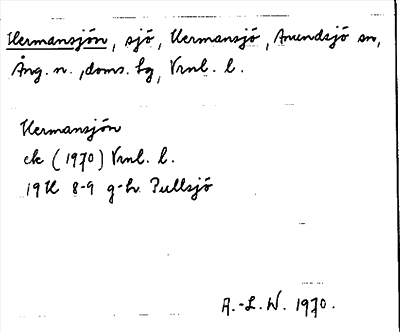 Hermansjön, sjö, Hermansjö, Anundsjö sn,
Ång. n., doms. lg, Vrnl. l.
Hermansjön
ek (1970) Vrnl. l.
19H 8-9 g-h Pullsjö
A.-L.W. 1970.